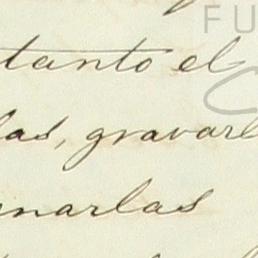 FU
tanto el
las, gravarl
narlas